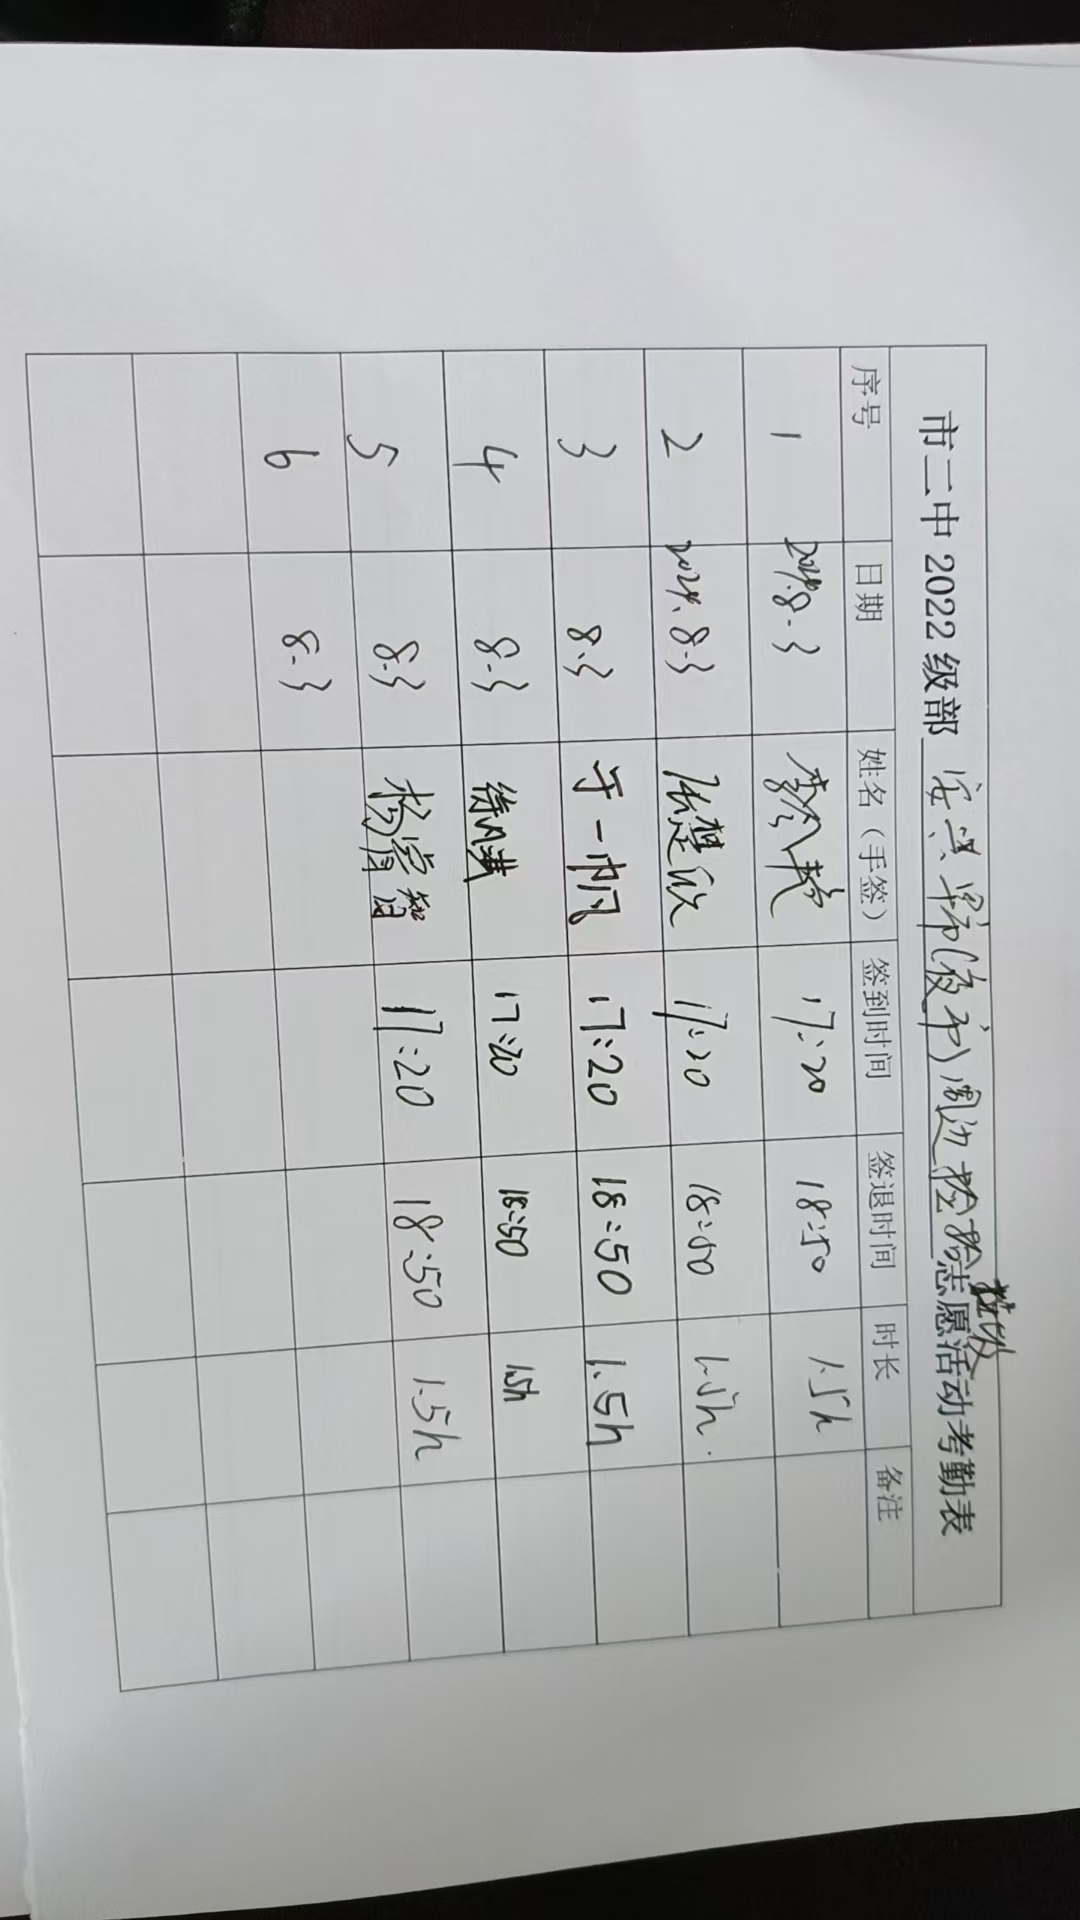 市二中 2022 级部 安兴早市(夜市)周边 捡拾垃圾志愿活动考勤表
序号 日期 姓名（手签） 签到时间 签退时间 时长 备注
1 2024.8.3 17:20 18:50 1.5h
2 2024.8.3 张楚欣 17:20 18:50 1.5h.
3 8.3 于一帆 17:20 18:50 1.5h
4 8.3 徐 17:20 18:50 1.5h
5 8.3 17:20 18:50 1.5h
6 8.3